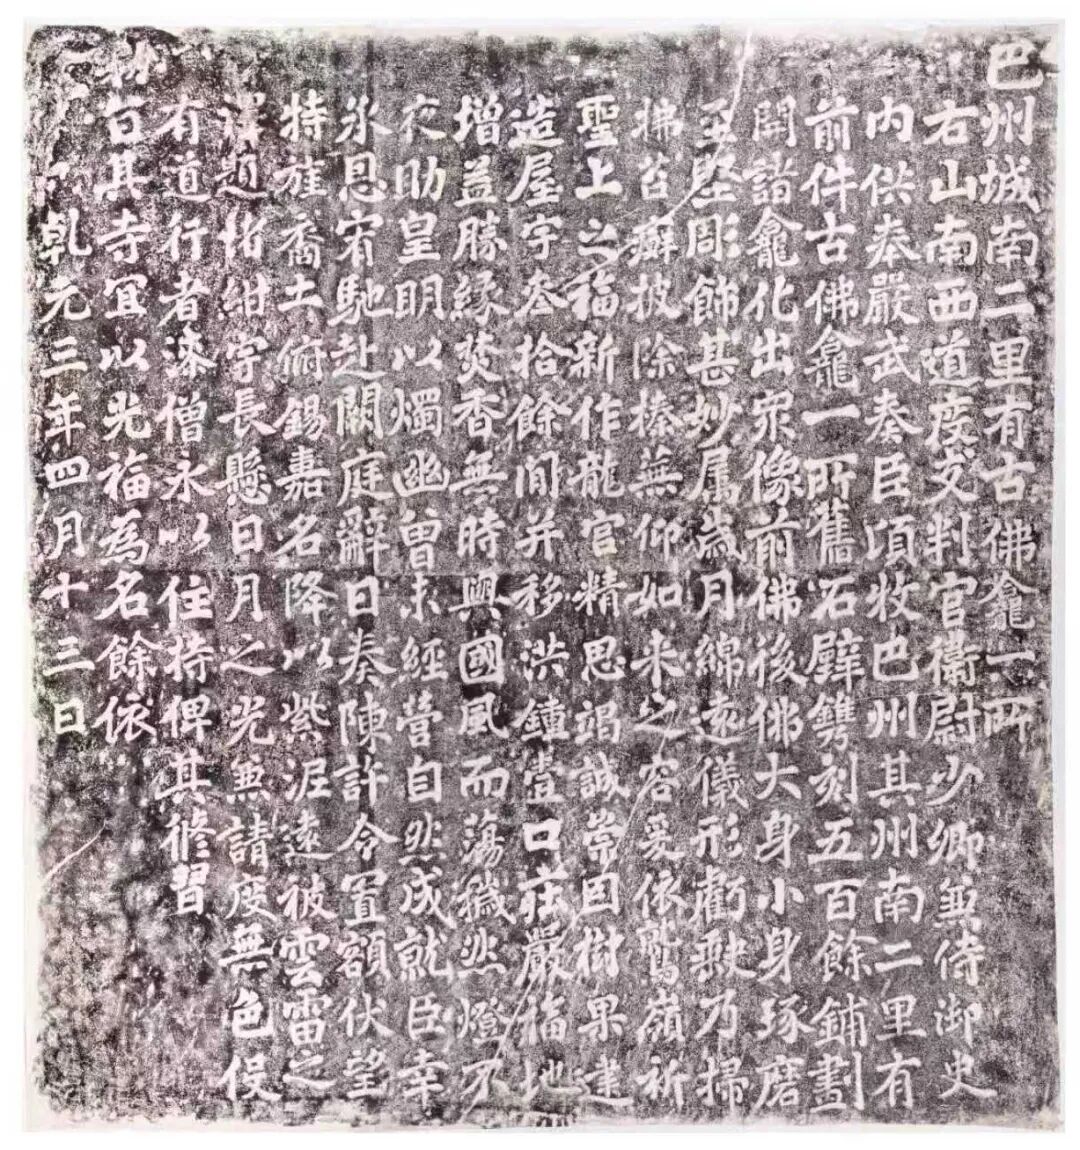 巴州城南二里有古佛龕一所
右山南西道度支判官衞尉少卿兼侍御史
内供奉嚴武奏臣頃牧巴州其州南二里有
前件古佛龕一所舊石壁鐫刻五百餘鋪劃
開諸龕化出衆像前佛後佛大身小身琢磨
至堅彫飾甚妙属歲月綿遠儀形虧缺乃掃
拂苔蘚披除榛蕪仰如来之容爰依鷲嶺祈
聖上之福新作龍宮精思竭誠崇因樹果建
造屋宇叁拾餘間并移洪鐘壹口莊嚴福地
增益勝緣焚香無時興國風而蕩穢然燈不
夜助皇明以燭幽曾未經營自然成就臣幸
承恩宥馳赴闕庭辭日奏陳許令置額伏望
特旌裔土俯錫嘉名降以紫泥遠被雲雷之
澤題指紺字長懸日月之光兼請度無色役
有道行者漆僧永以住持俾其修習
勑旨其寺宜以光福為名餘依
乾元三年四月十三日